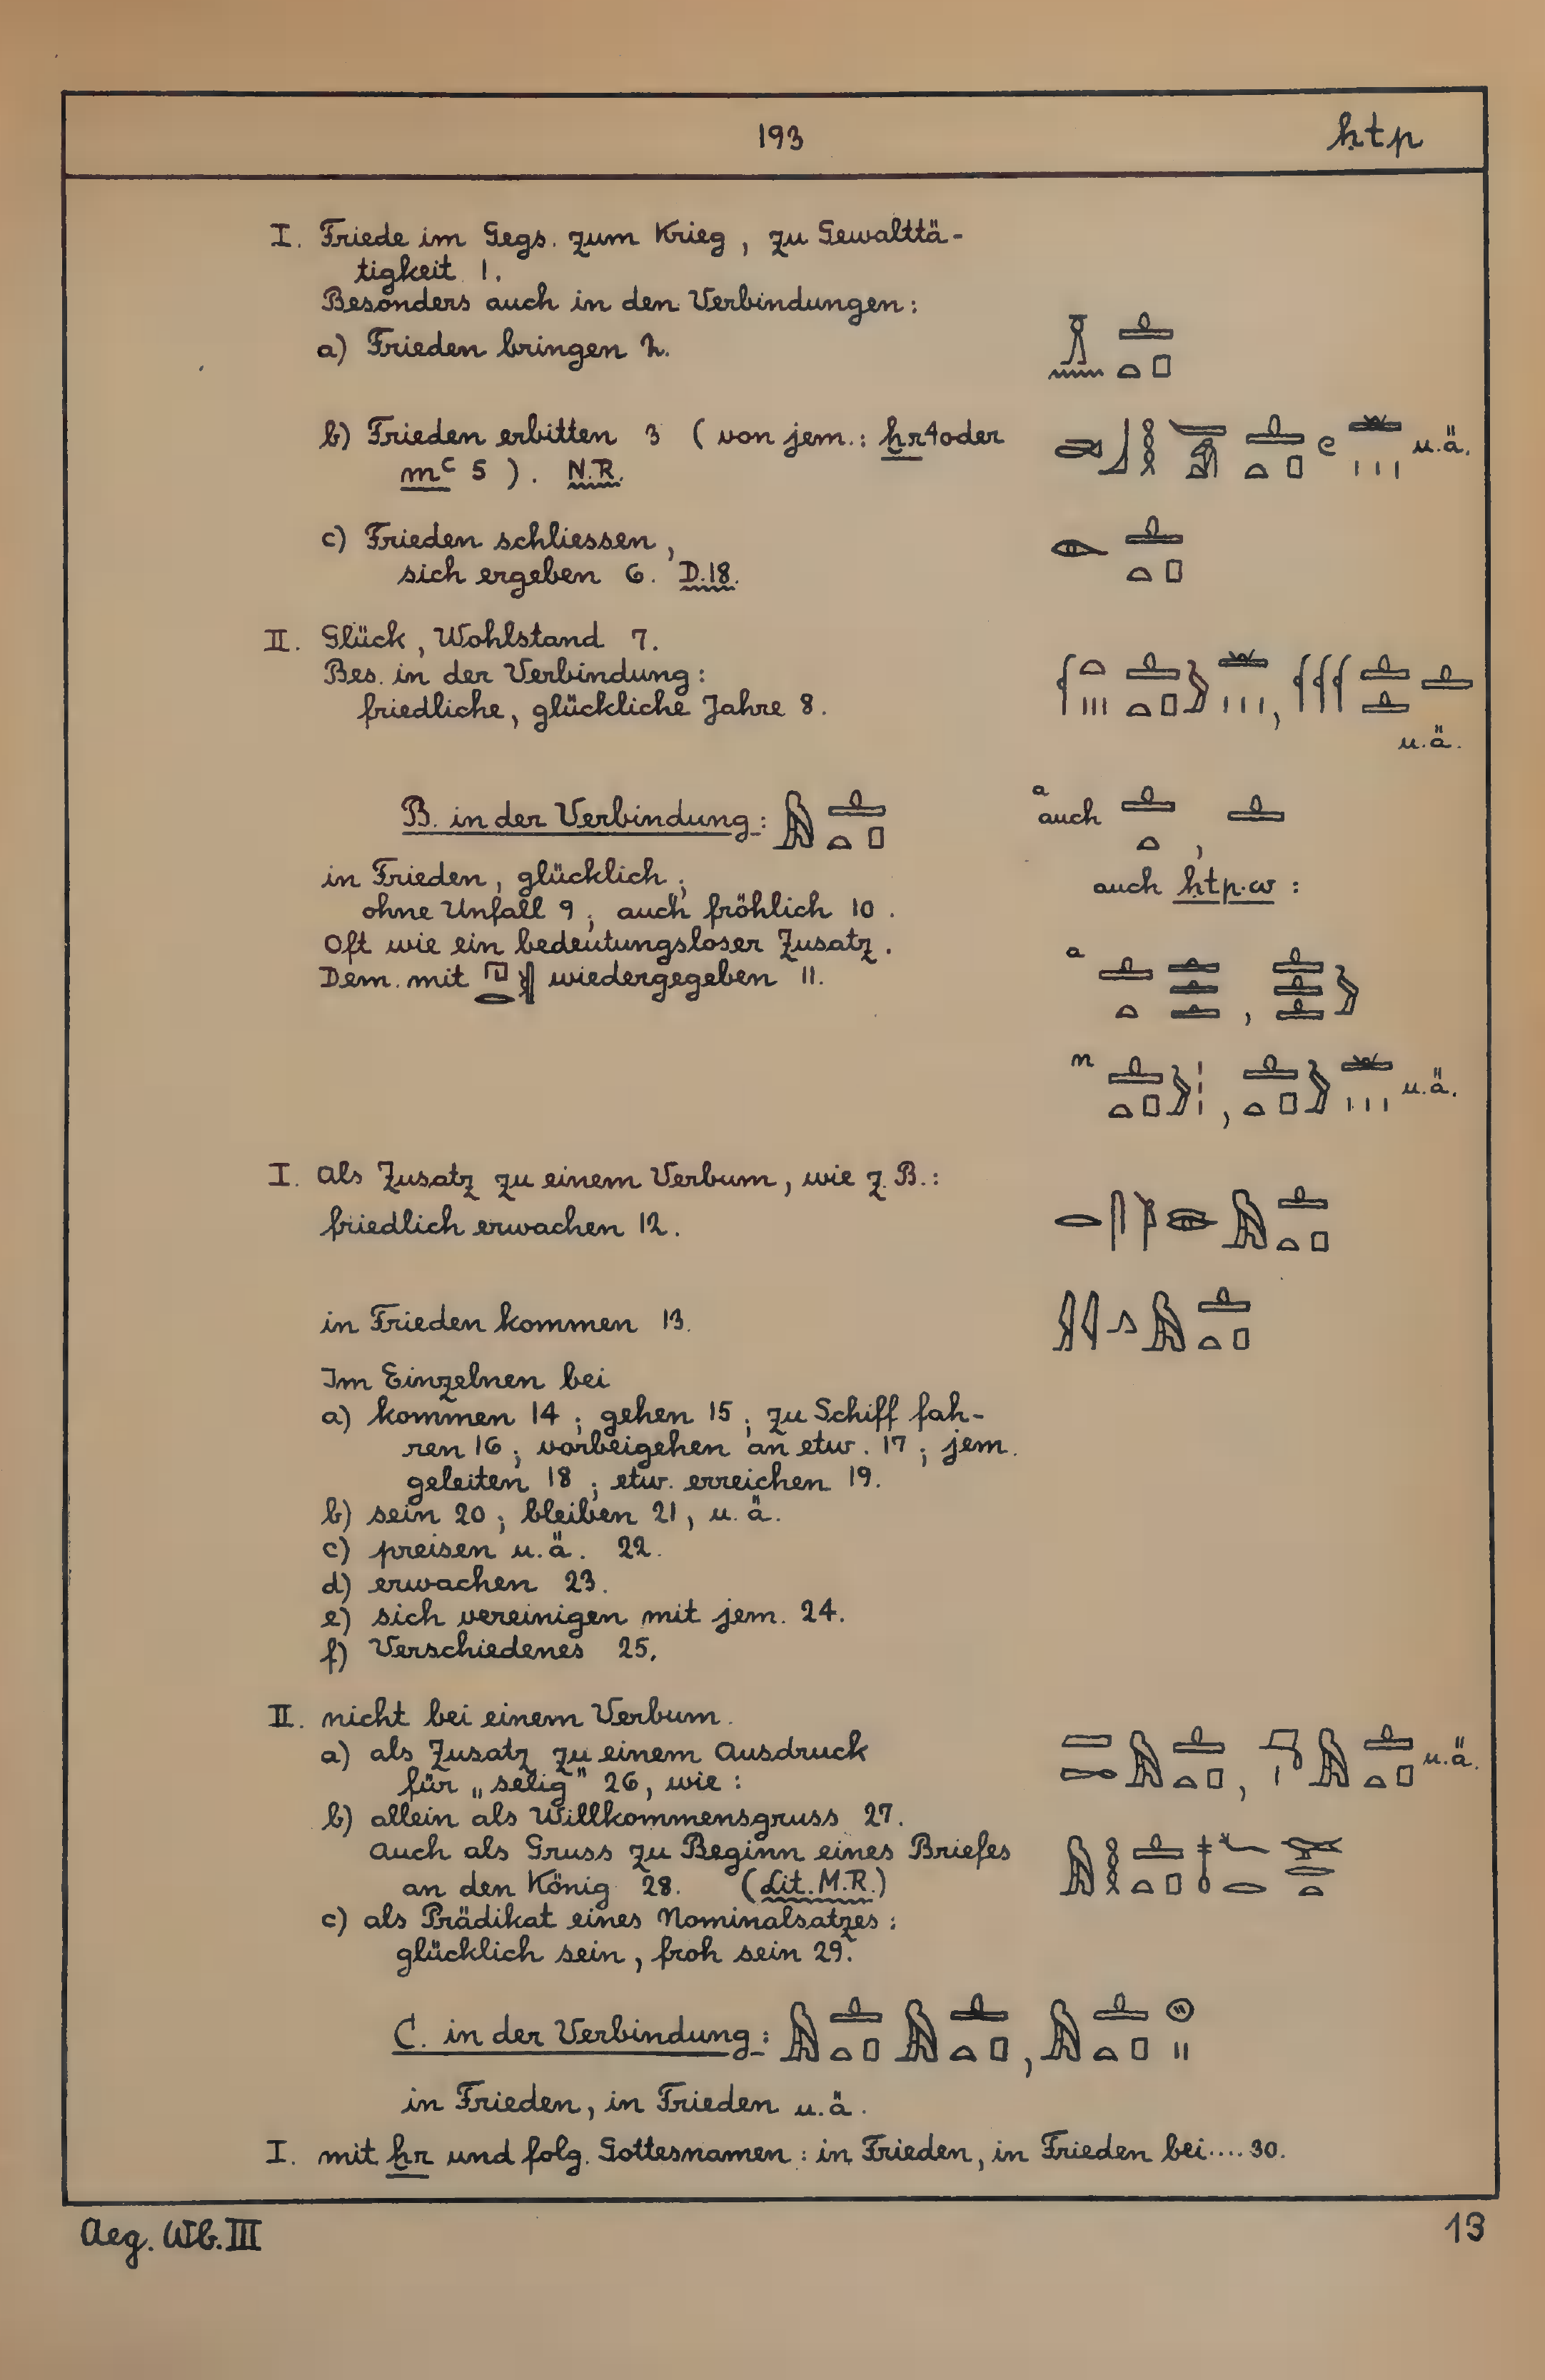 193 ḥtp
I. Friede im Gegs. zum Krieg, zu Gewalttä-
tigkeit 1.
Besonders auch in den Verbindungen:
a) Frieden bringen 2.
b) Frieden erbitten 3 (von jem.: ḫr 4 oder u.ä.
mꜥ 5). N.R.
c) Frieden schliessen,
sich ergeben 6. D.18.
II. Glück, Wohlstand 7.
Bes. in der Verbindung:
friedliche, glückliche Jahre 8.
u.ä.
B. in der Verbindung:
a auch ,
in Frieden, glücklich;
auch ḥtp.w:
ohne Unfall 9; auch fröhlich 10.
Oft wie ein bedeutungsloser Zusatz.
a ,
Dem. mit wiedergegeben 11.
n , u.ä.
I. als Zusatz zu einem Verbum, wie z.B.:
friedlich erwachen 12.
in Frieden kommen 13.
Im Einzelnen bei
a) kommen 14; gehen 15; zu Schiff fah-
ren 16; vorbeigehen an etw. 17; jem.
geleiten 18; etw. erreichen 19.
b) sein 20; bleiben 21, u.ä.
c) preisen u.ä. 22.
d) erwachen 23.
e) sich vereinigen mit jem. 24.
f) Verschiedenes 25.
II. nicht bei einem Verbum.
a) als Zusatz zu einem Ausdruck
für „selig" 26, wie: , u.ä.
b) allein als Willkommensgruss 27.
Auch als Gruss zu Beginn eines Briefes
an den König 28. (Lit. M.R.)
c) als Prädikat eines Nominalsatzes:
glücklich sein, froh sein 29.
C. in der Verbindung: ,
in Frieden, in Frieden u.ä.
I. mit ḫr und folg. Gottesnamen: in Frieden, in Frieden bei .... 30.
Aeg. Wb. III 13